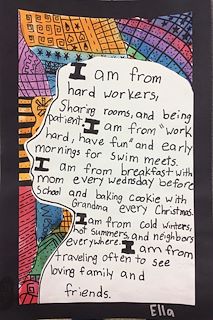 I am from
hard workers,
Sharing rooms, and being
patient. I am from "work
hard, have fun" and early
mornings for swim meets.
I am from breakfast with
mom every wednesday before
School and baking cookie with
Grandma every Christmas.
I am from cold winters,
hot summers, and neighbors
everywhere. I am from
traveling often to see
loving family and
friends.
Ella